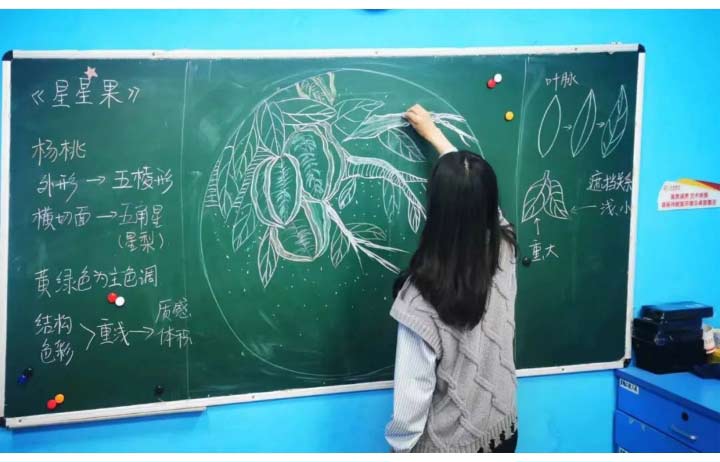 《星星果》
杨桃
外形→五棱形
横切面→五角星
(星梨)
黄绿色为主色调
结构
色彩
>重浅→
质感
体积
叶脉
遮挡关系
浅、小
重大